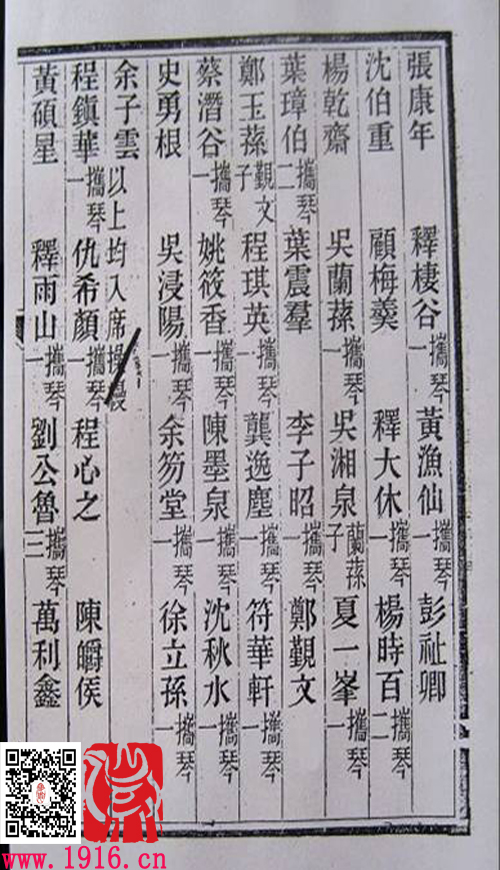 張康年 釋棲谷攜琴一 黃漁仙攜琴一 彭祉卿
沈伯重 顧梅羹 釋大休攜琴一 楊時百攜琴二
楊乾齋 吳蘭蓀攜琴一 吳湘泉蘭蓀子 夏一峯攜琴一
葉璋伯攜琴二 葉震羣 李子昭 鄭覲文
鄭玉蓀覲文子 程琪英攜琴一 龔逸塵攜琴一 符華軒攜琴一
蔡潛谷攜琴一 姚筱香攜琴一 陳墨泉攜琴一 沈秋水攜琴一
史勇根 吳浸陽攜琴一 余笏堂攜琴一 徐立孫攜琴一
余子雲 以上均入席操縵
程鎮華攜琴一 仇希顏攜琴一 程心之 陳皭俟
黃碩星 釋雨山攜琴一 劉公魯攜琴三 萬利鑫
www.1916.cn